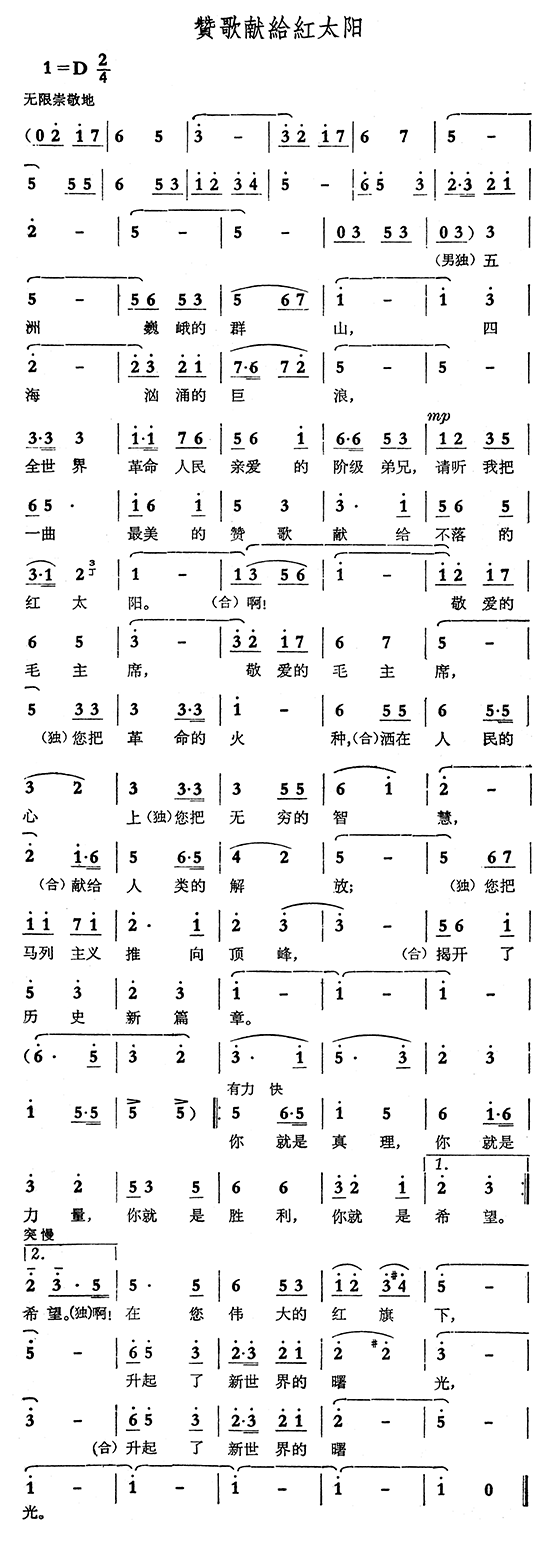 赞歌献給紅太阳
1=D 2/4
无限崇敬地
(0 2 1 7 | 6 5 | 3 - | 3 2 1 7 | 6 7 | 5 - |
5 5 5 | 6 5 3 | 1 2 3 4 | 5 - | 6 5 3 | 2·3 2 1 |
2 - | 5 - | 5 - | 0 3 5 3 | 0 3) 3 |
(男独)五
5 - | 5 6 5 3 | 5 6 7 | 1 - | 1 3 |
洲 巍峨的 群 山, 四
2 - | 2 3 2 1 | 7·6 7 2 | 5 - | 5 - |
海 汹涌的 巨 浪,
mp
3·3 3 | 1·1 7 6 | 5 6 1 | 6·6 5 3 | 1 2 3 5 |
全世界 革命人民 亲爱的 阶级弟兄, 请听我把
6 5 · | 1 6 1 | 5 3 | 3 · 1 | 5 6 5 |
一曲 最美的 赞歌 献给 不落的
3·1 2 3 | 1 - | 1 3 5 6 | 1 - | 1 2 1 7 |
红太 阳。 (合)啊! 敬爱的
6 5 | 3 - | 3 2 1 7 | 6 7 | 5 - |
毛主 席, 敬爱的 毛主 席,
5 3 3 | 3 3·3 | 1 - | 6 5 5 | 6 5·5 |
(独)您把 革命的 火 种,(合)洒在 人民的
3 2 | 3 3·3 | 3 5 5 | 6 1 | 2 - |
心 上(独)您把 无穷的 智 慧,
2 1·6 | 5 6·5 | 4 2 | 5 - | 5 6 7 |
(合)献给 人类的 解 放; (独)您把
1 1 7 1 | 2 · 1 | 2 3 | 3 - | 5 6 1 |
马列主义 推向 顶峰, (合)揭开了
5 3 | 2 3 | 1 - | 1 - | 1 - |
历史 新篇 章。
(6 · 5 | 3 2 | 3 · 1 | 5 · 3 | 2 3 |
有力 快
1 5·5 | 5 5) ‖: 5 6·5 | 1 5 | 6 1·6 |
你就是 真理, 你就是
1.
3 2 | 5 3 5 | 6 6 | 3 2 1 | 2 3 :‖
力量, 你就是 胜利, 你就是 希望。
突慢
2.
2 3 · 5 | 5 · 5 | 6 5 3 | 1 2 3 #4 | 5 - |
希望。(独)啊! 在您 伟大的 红旗 下,
5 - | 6 5 3 | 2·3 2 1 | 2 #2 | 3 - |
升起了 新世界的 曙 光,
3 - | 6 5 3 | 2·3 2 1 | 2 - | 5 - |
(合)升起了 新世界的 曙
1 - | 1 - | 1 - | 1 - | 1 0 ‖
光。